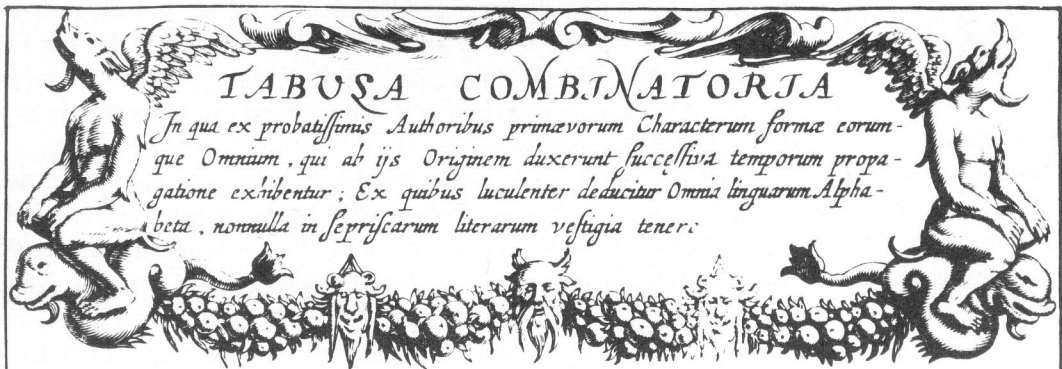 TABULA COMBINATORIA
In qua ex probatiſſimis Authoribus primævorum Characterum formæ eorum-
que Omnium, qui ab ijs Originem duxerunt ſucceſſiva temporum propa-
gatione exhibentur; Ex quibus luculenter deducitur Omnia linguarum Alpha-
beta, nonnulla in ſe priſcarum literarum veſtigia tenere